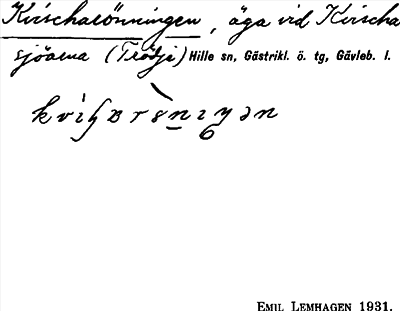 Kvischarönningen, äga vid Kvischa
sjöarna (Trödje) Hille sn, Gästrikl. ö. tg, Gävleb. l.
EMIL LEMHAGEN 1931.